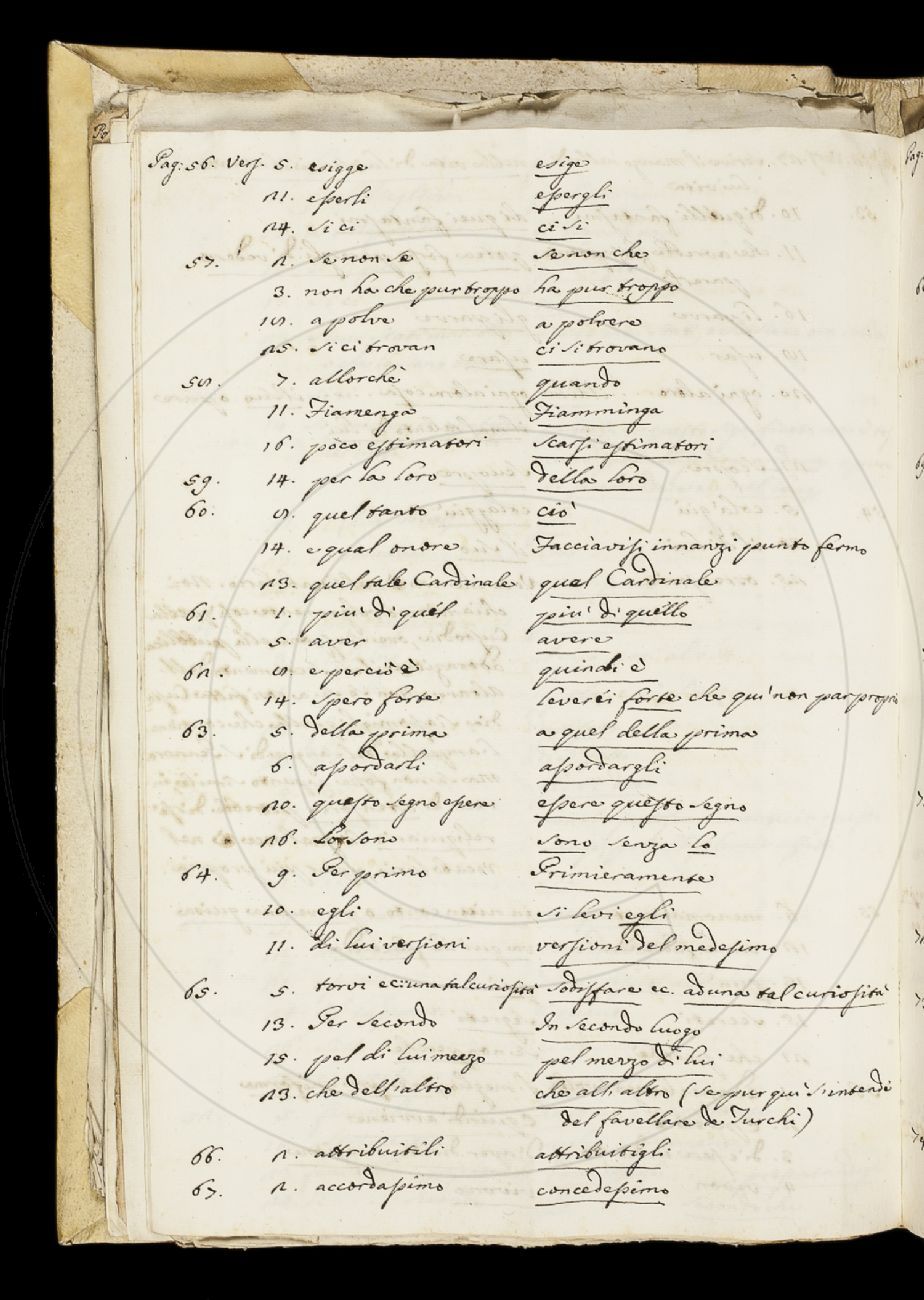 Pag: 56. Vers. 5. esigge esige
21. esserli essergli
24. si ci ci si
57. 2. se non se se non che
3. non ha che pur troppo ha pur troppo
18. a polve a polvere
25. si ci trovan ci si trovano
58. 7. allorchè quando
11. Fiamenga Fiamminga
16. poco estimatori scarsi estimatori
59. 14. per la loro della loro
60. 8. quel tanto ciò
14. e qual onore Facciavisi innanzi punto fermo
23. quel tale Cardinale quel Cardinale
61. 1. più di quel più di quello
5. aver avere
62. 8. e perciò è quindi è
14. spero forte leverei forte che quì non par propri
63. 5. della prima a quel della prima
6. assordarli assordargli
20. questo segno essere essere questo segno
26. Lo sono sono senza lo
64. 9. Per primo Primieramente
10. egli si levi egli
11. di lui versioni versioni del medesimo
65. 5. torvi ec: una tal curiosità sodisfare ec. ad una tal curiosità
13. Per secondo In secondo luogo
15. pel di lui mezzo pel mezzo di lui
23. che dell'altro che all'altro (se pur quì s'intende
del favellare de Turchi)
66. 2. attribuitili attribuitigli
67. 2. accordassimo concedessimo